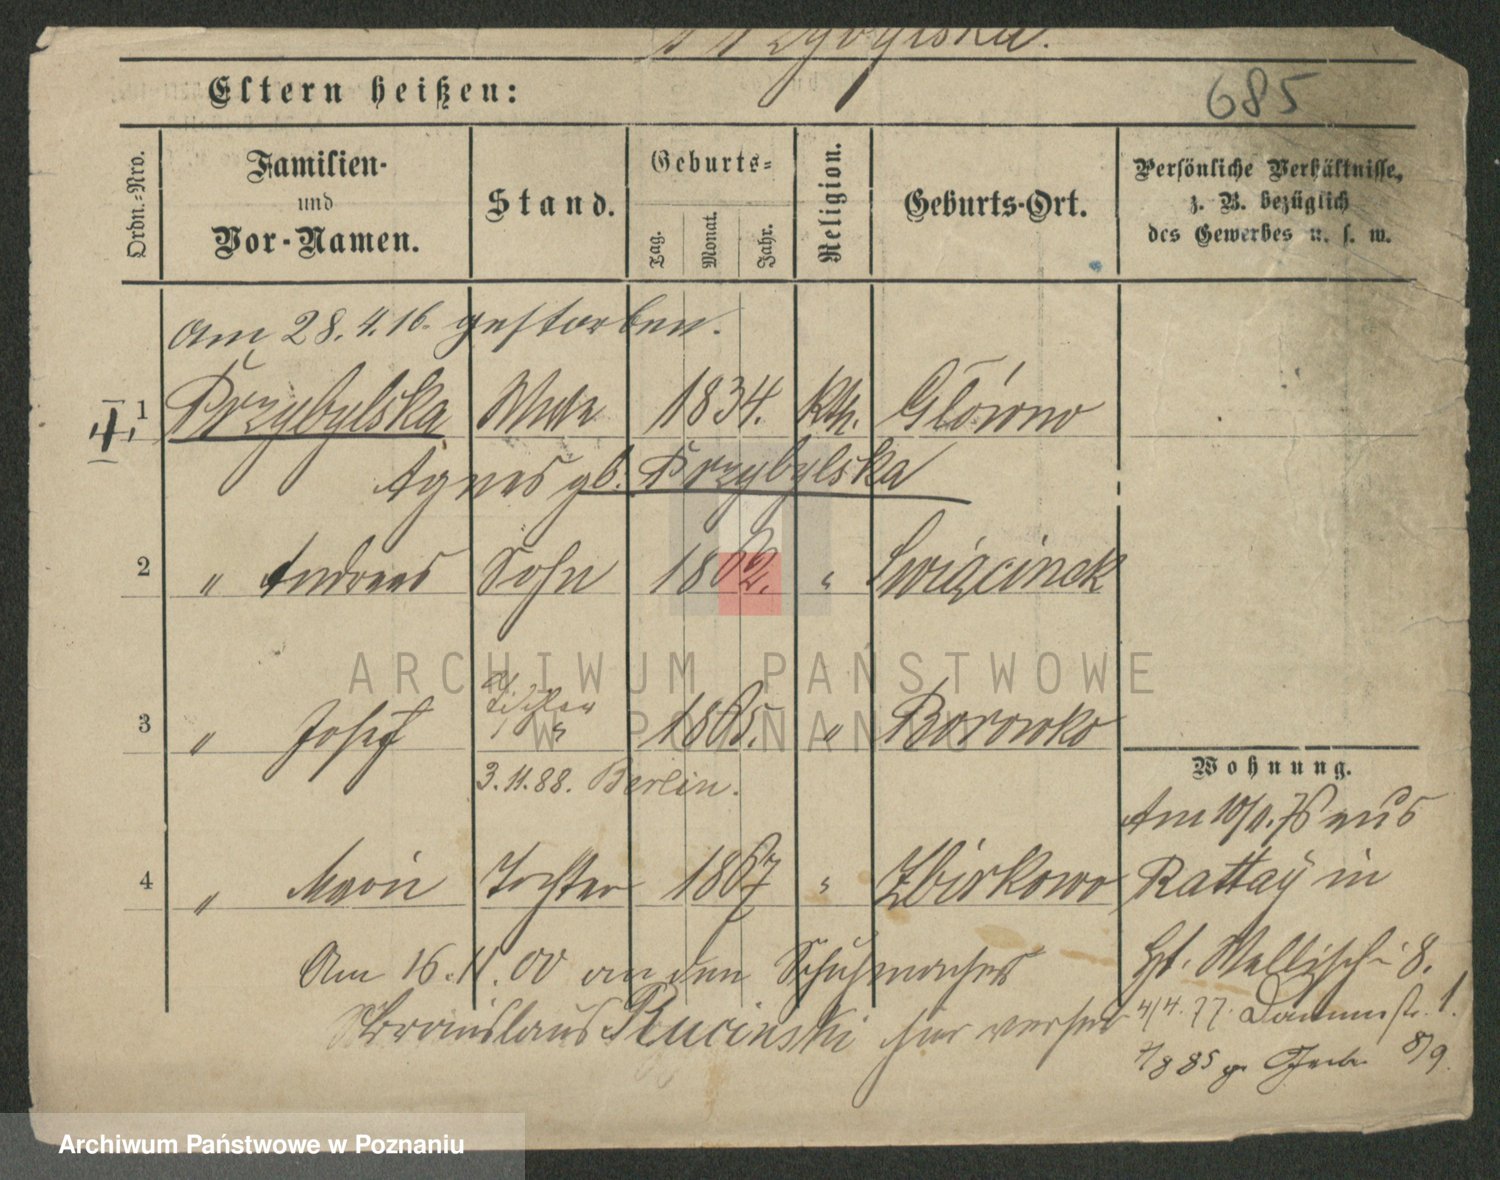 Przybylska.
Eltern heißen:
685
Ordn.-Nro.
Familien-
und
Vor-Namen.
Stand.
Geburts-
Tag.
Monat.
Jahr.
Religion.
Geburts-Ort.
Persönliche Verhältnisse,
z. B. bezüglich
des Gewerbes u. s. w.
Am 28.4.16. gestorben.
1 Przybylska Wwe 1834. kth. Główno
Agnes gb. Przybylska
2 " Andreas Sohn 1862. " Swiącinek
Tischler
3 " Josef " 1865. " Borowko
3.11.88. Berlin.
Wohnung.
Am 10/1.76 aus
4 " Marie Tochter 1867 " Zbirkowo
Rattay in
Am 16.11.00 an den Schuhmacher
8.
Bronislaus Rucinski hier verh
4/4.77. Dammstr. 1.
7/8 85 Gerbe 8/9.
ARCHIWUM PAŃSTWOWE
W POZNANIU
Archiwum Państwowe w Poznaniu